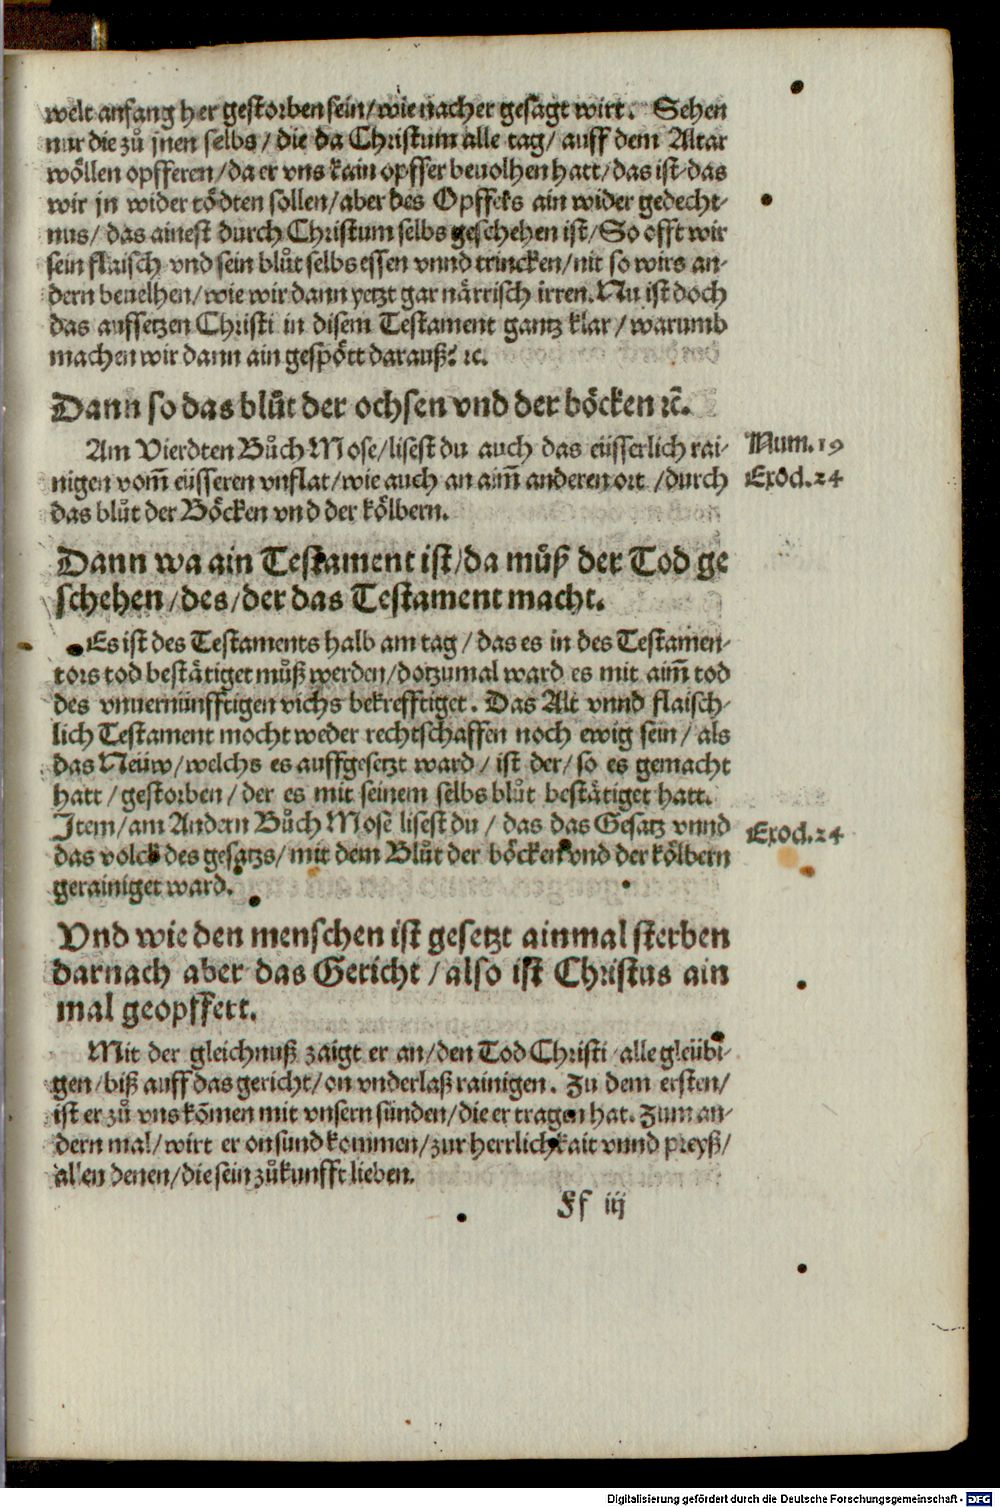 welt anfang her gestorben sein/ wie nach er gesagt wirt. Sehen
nur die zů jnen selbs/ die da Christum alle tag/ auff dem Altar
wöllen opfferen/ da er vns kain opffer beuolhen hatt/ das ist/ das
wir jn wider tödten sollen/ aber des Opffers ain wider gedecht-
nus/ das ainest durch Christum selbs geschehen ist/ So offt wir
sein flaisch vnd sein blůt selbs essen vnnd trincken/ nit so wirs an-
dern beuelhen/ wie wir dann yetzt gar närrisch irren. Nu ist doch
das auffsetzen Christi in disem Testament gantz klar/ warumb
machen wir dann ain gespött darauß? ꝛc.
Dann so das blůt der ochsen vnd der böcken ꝛc̃.
Am Vierdten Bůch Mose/ lisest du auch das eüsserlich rai- Num. 19
nigen vom̃ eüsseren vnflat/ wie auch an aim̃ anderen ort/ durch Exod. 24
das blůt der Böcken vnd der kölbern.
Dann wa ain Testament ist/ da můß der Tod ge
schehen/ des/ der das Testament macht.
Es ist des Testaments halb am tag/ das es in des Testamen-
tors tod bestätiget můß werden/ dotzumal ward es mit aim̃ tod
des vnuernünfftigen vichs bekrefftiget. Das Alt vnnd flaisch-
lich Testament mocht weder rechtschaffen noch ewig sein/ als
das Neüw/ welchs es auffgesetzt ward/ ist der/ so es gemacht
hatt/ gestorben/ der es mit seinem selbs blůt bestätiget hatt.
Item/ am Andern Bůch Mose lisest du/ das das Gesatz vnnd Exod. 24
das volck des gesatzs/ mit dem Blůt der böcken vnd der kölbern
gerainiget ward.
Vnd wie den menschen ist gesetzt ainmal sterben
darnach aber das Gericht/ also ist Christus ain
mal geopffert.
Mit der gleichnuß zaigt er an/ den Tod Christi alle gleübi-
gen/ biß auff das gericht/ on vnderlaß rainigen. Zu dem ersten/
ist er zů vns kõmen mit vnsern sünden/ die er tragen hat. Zum an-
dern mal/ wirt er on sünd kommen/ zur herrlichkait vnnd preyß/
allen denen/ die sein zůkunfft lieben.
Ff iij
Digitalisierung gefördert durch die Deutsche Forschungsgemeinschaft - DFG